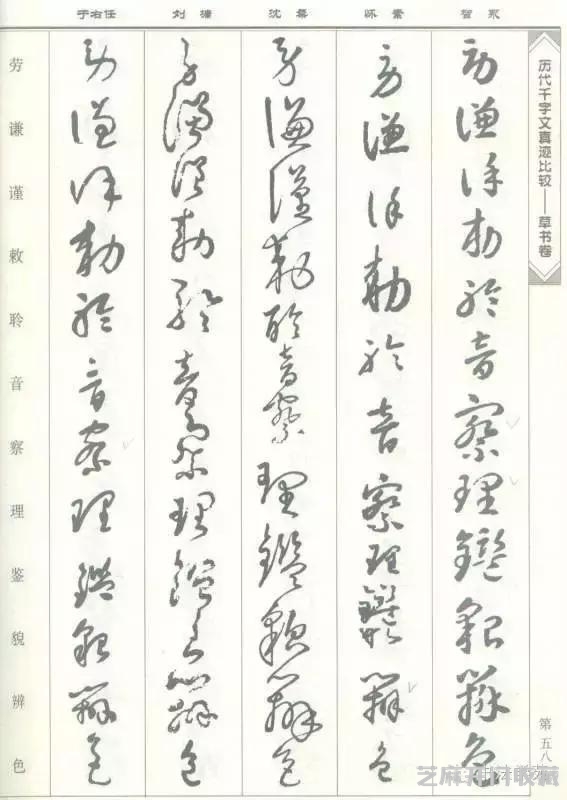 历代千字文真迹比较——草书卷
第五八
智永
劳谦谨敕聆音察理鑑貌辨色
怀素
劳谦谨敕聆音察理鑑貌辨色
沈粲
劳谦谨敕聆音察理鑑貌辨色
刘墉
劳谦谨敕聆音察理鑑貌辨色
于右任
劳谦谨敕聆音察理鑑貌辨色
劳谦谨敕聆音察理鉴貌辨色